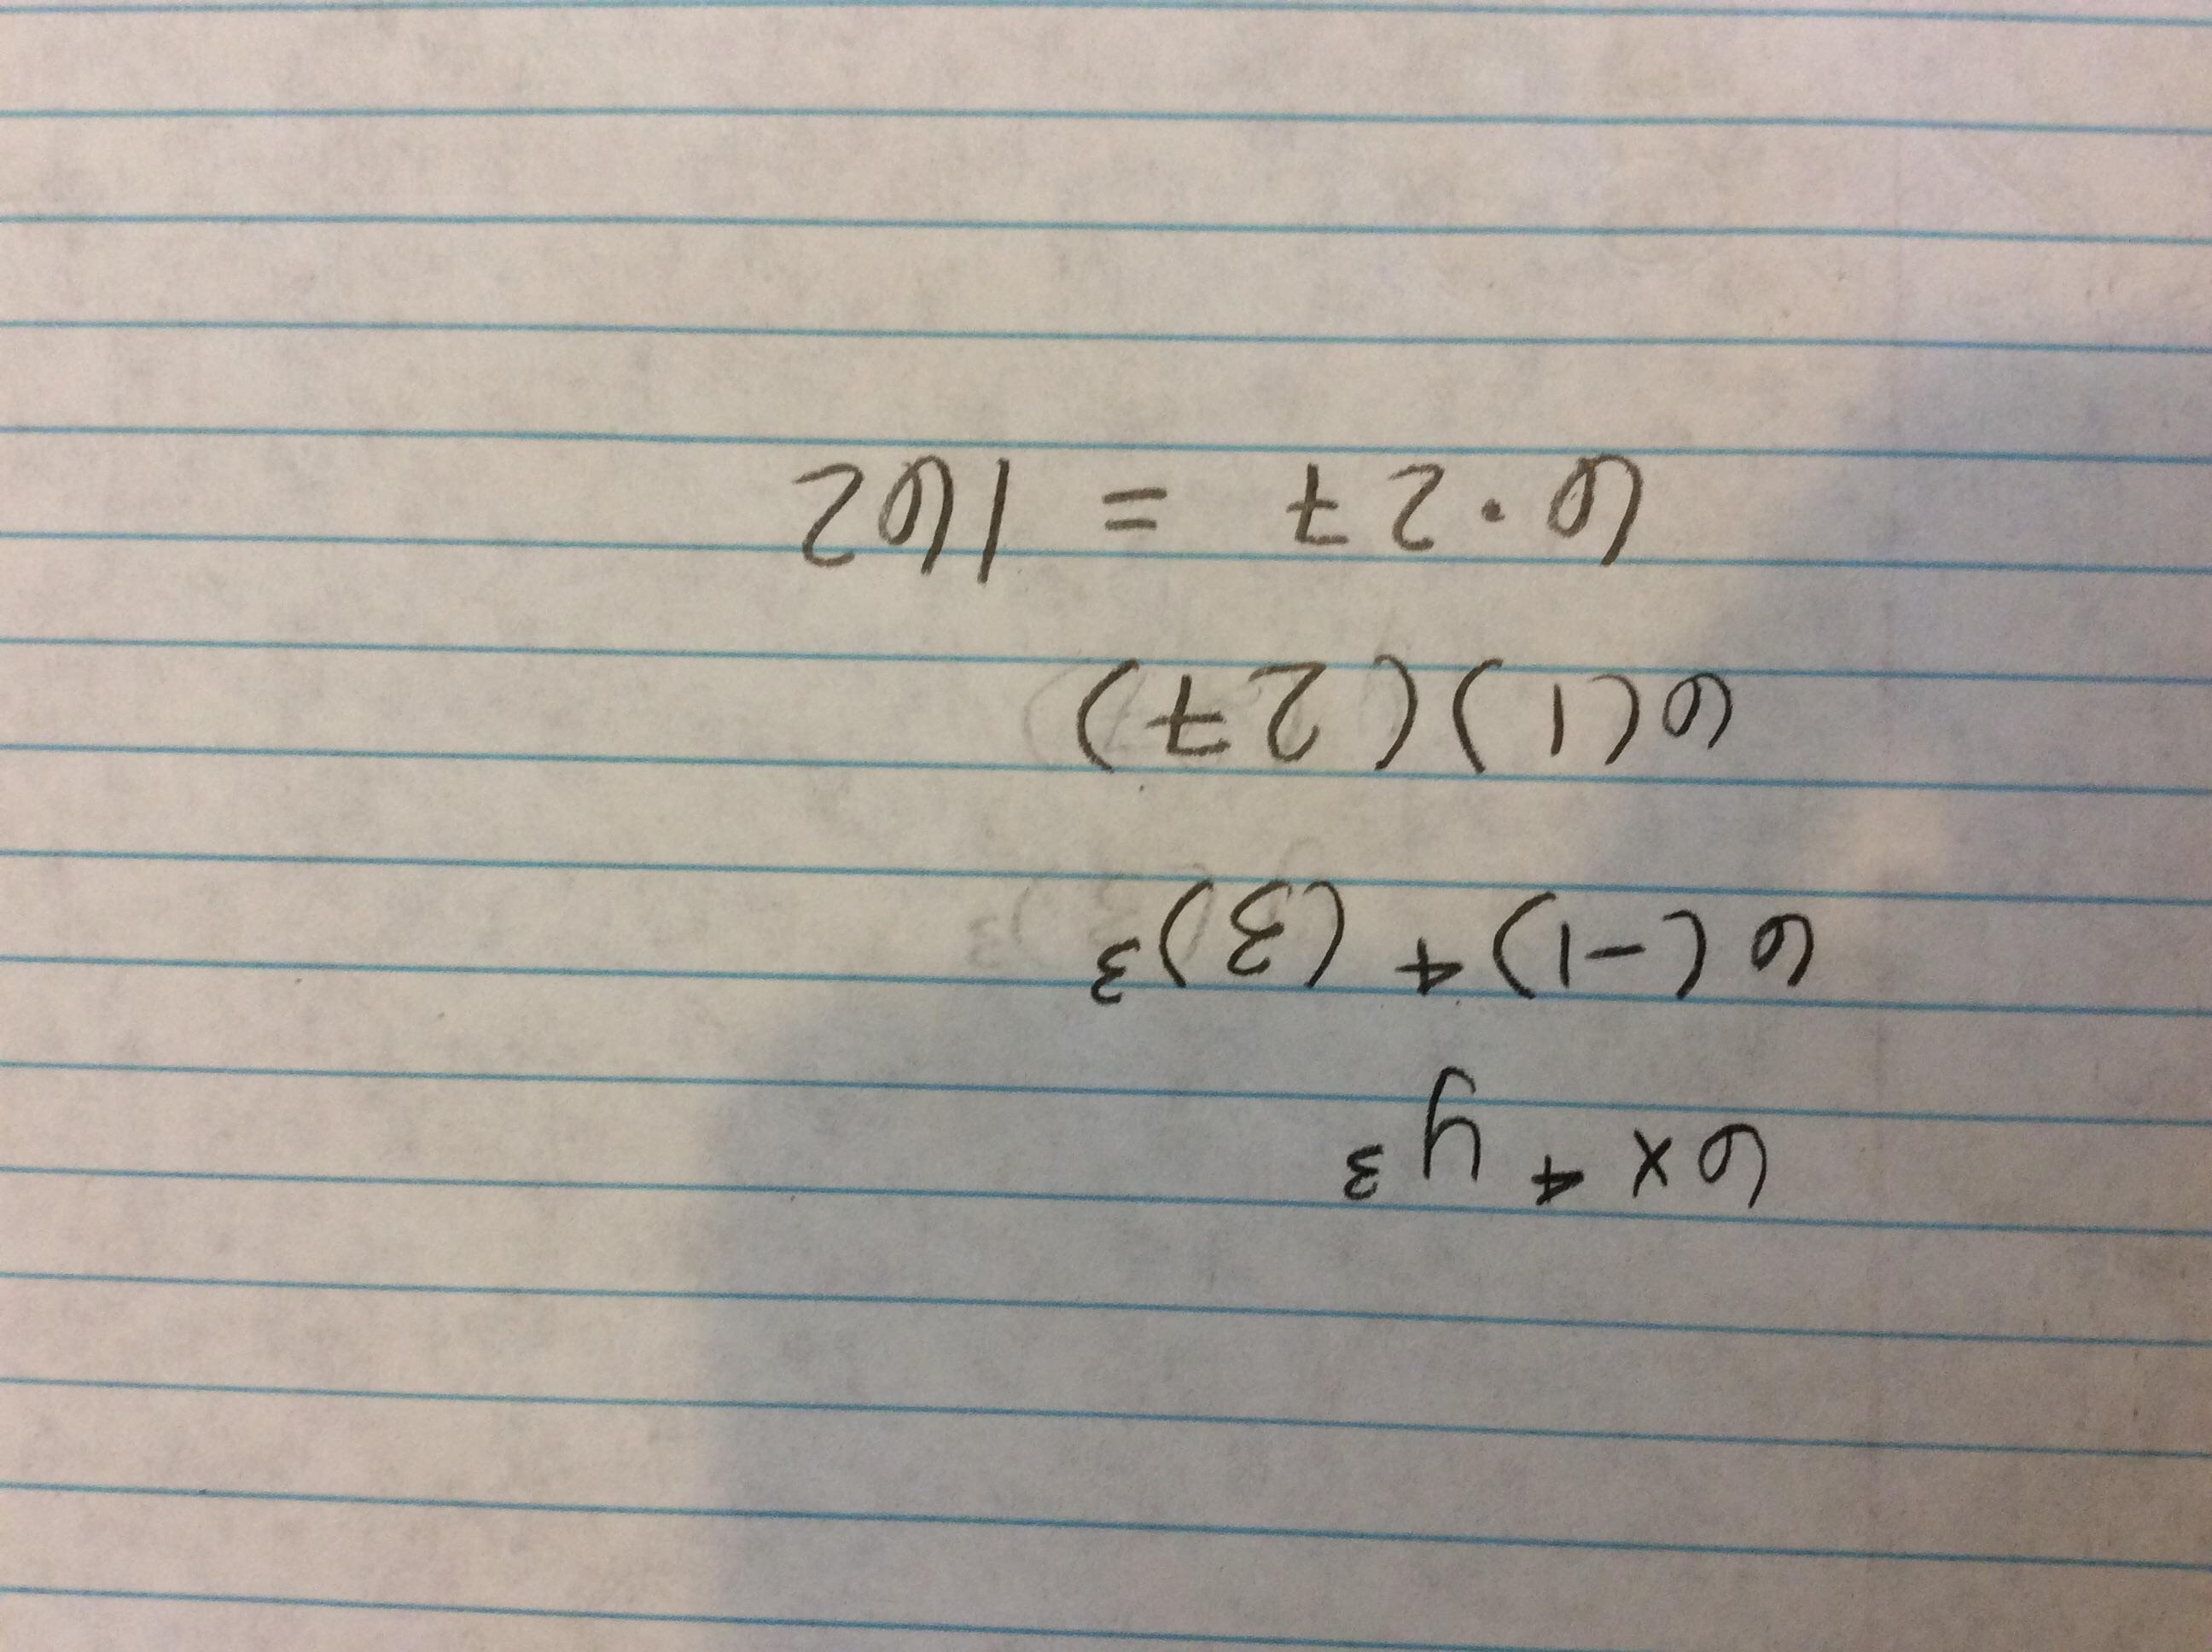 6x⁴y³
6(-1)⁴(3)³
6(1)(27)
6·27 = 162